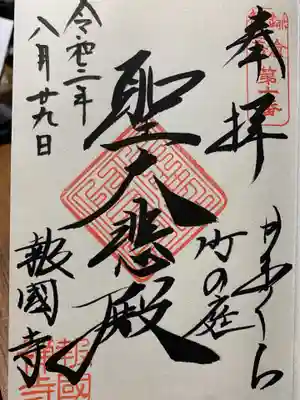 奉拝
第十番
かまくら
竹の庭
聖大悲殿
令和二年
八月廿九日
報國寺
報國禅寺